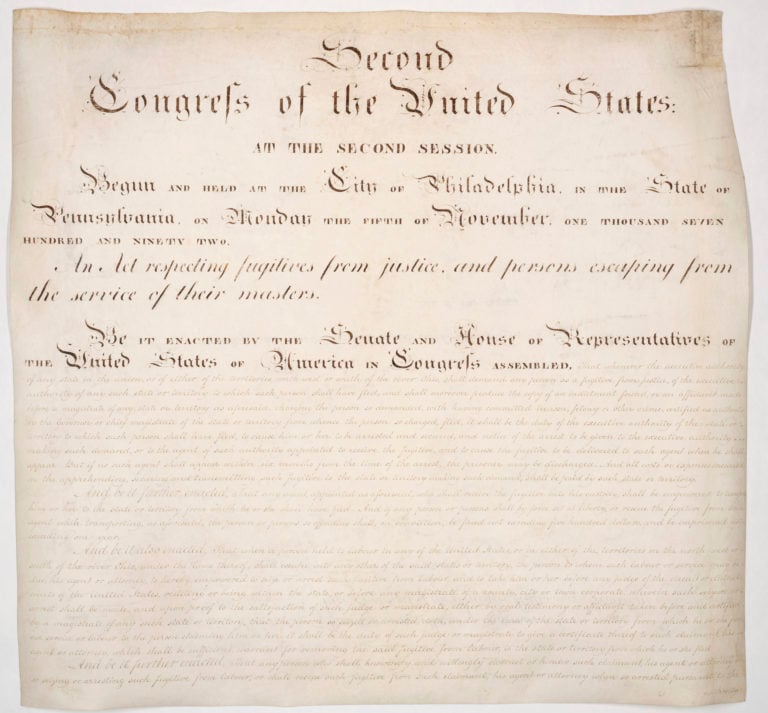 Second
Congreſs of the United States:
AT THE SECOND SESSION,
Begun AND HELD AT THE City OF Philadelphia, IN THE State OF
Pennsylvania, ON Monday THE FIFTH OF November, ONE THOUSAND SEVEN
HUNDRED AND NINETY TWO.
An Act respecting fugitives from justice, and persons escaping from
the service of their masters.
Be IT ENACTED BY THE Senate AND House OF Representatives OF
THE United States OF America IN Congreſs ASSEMBLED, That whenever the executive authority
of any state in the union, or of either of the territories northwest or south of the river Ohio, shall demand any person as a fugitive from justice, of the executive
authority of any such state or territory to which such person shall have fled, and shall moreover produce the copy of an indictment found, or an affidavit made
before a magistrate of any state or territory as aforesaid, charging the person so demanded, with having committed treason, felony or other crime, certified as authentic
by the Governor or chief magistrate of the state or territory from whence the person so charged fled, it shall be the duty of the executive authority of the state or
territory to which such person shall have fled, to cause him or her to be arrested and secured, and notice of the arrest to be given to the executive authority
making such demand, or to the agent of such authority appointed to receive the fugitive, and to cause the fugitive to be delivered to such agent when he shall
appear: But if no such agent shall appear within six months from the time of the arrest, the prisoner may be discharged. And all costs or expenses incurred
in the apprehending, securing and transmitting such fugitive to the state or territory making such demand, shall be paid by such state or territory.
And be it further enacted, That any agent appointed as aforesaid, who shall receive the fugitive into his custody, shall be empowered to
him or her to the state or territory from which he or she shall have fled. And if any person or persons shall by force set at liberty, or rescue the fugitive from
agent while transporting, as aforesaid, the person or persons so offending shall, on conviction, be fined not exceeding five hundred dollars, and be imprisoned
exceeding one year.
And be it also enacted, That when a person held to labour in any of the United States, or in either of the territories on the northwest or
south of the river Ohio, under the laws thereof, shall escape into any other of the said states or territory, the person to whom such labour or service may be
due, his agent or attorney, is hereby empowered to seize or arrest such fugitive from labour, and to take him or her before any judge of the circuit or district
courts of the United States, residing or being within the state, or before any magistrate of a county, city or town corporate, wherein such seizure or
arrest shall be made, and upon proof to the satisfaction of such judge or magistrate, either by oral testimony or affidavit taken before and certified
by a magistrate of any such state or territory, that the person so seized or arrested, doth, under the laws of the state or territory from which he or she fled
owe service or labour to the person claiming him or her, it shall be the duty of such judge or magistrate to give a certificate thereof to such claimant, his
agent or attorney, which shall be sufficient warrant for removing the said fugitive from labour, to the state or territory from which he or she fled.
And be it further enacted, That any person who shall knowingly and willingly obstruct or hinder such claimant, his agent or attorney
so seizing or arresting such fugitive from labour, or shall rescue such fugitive from such claimant, his agent or attorney when so arrested pursuant to the